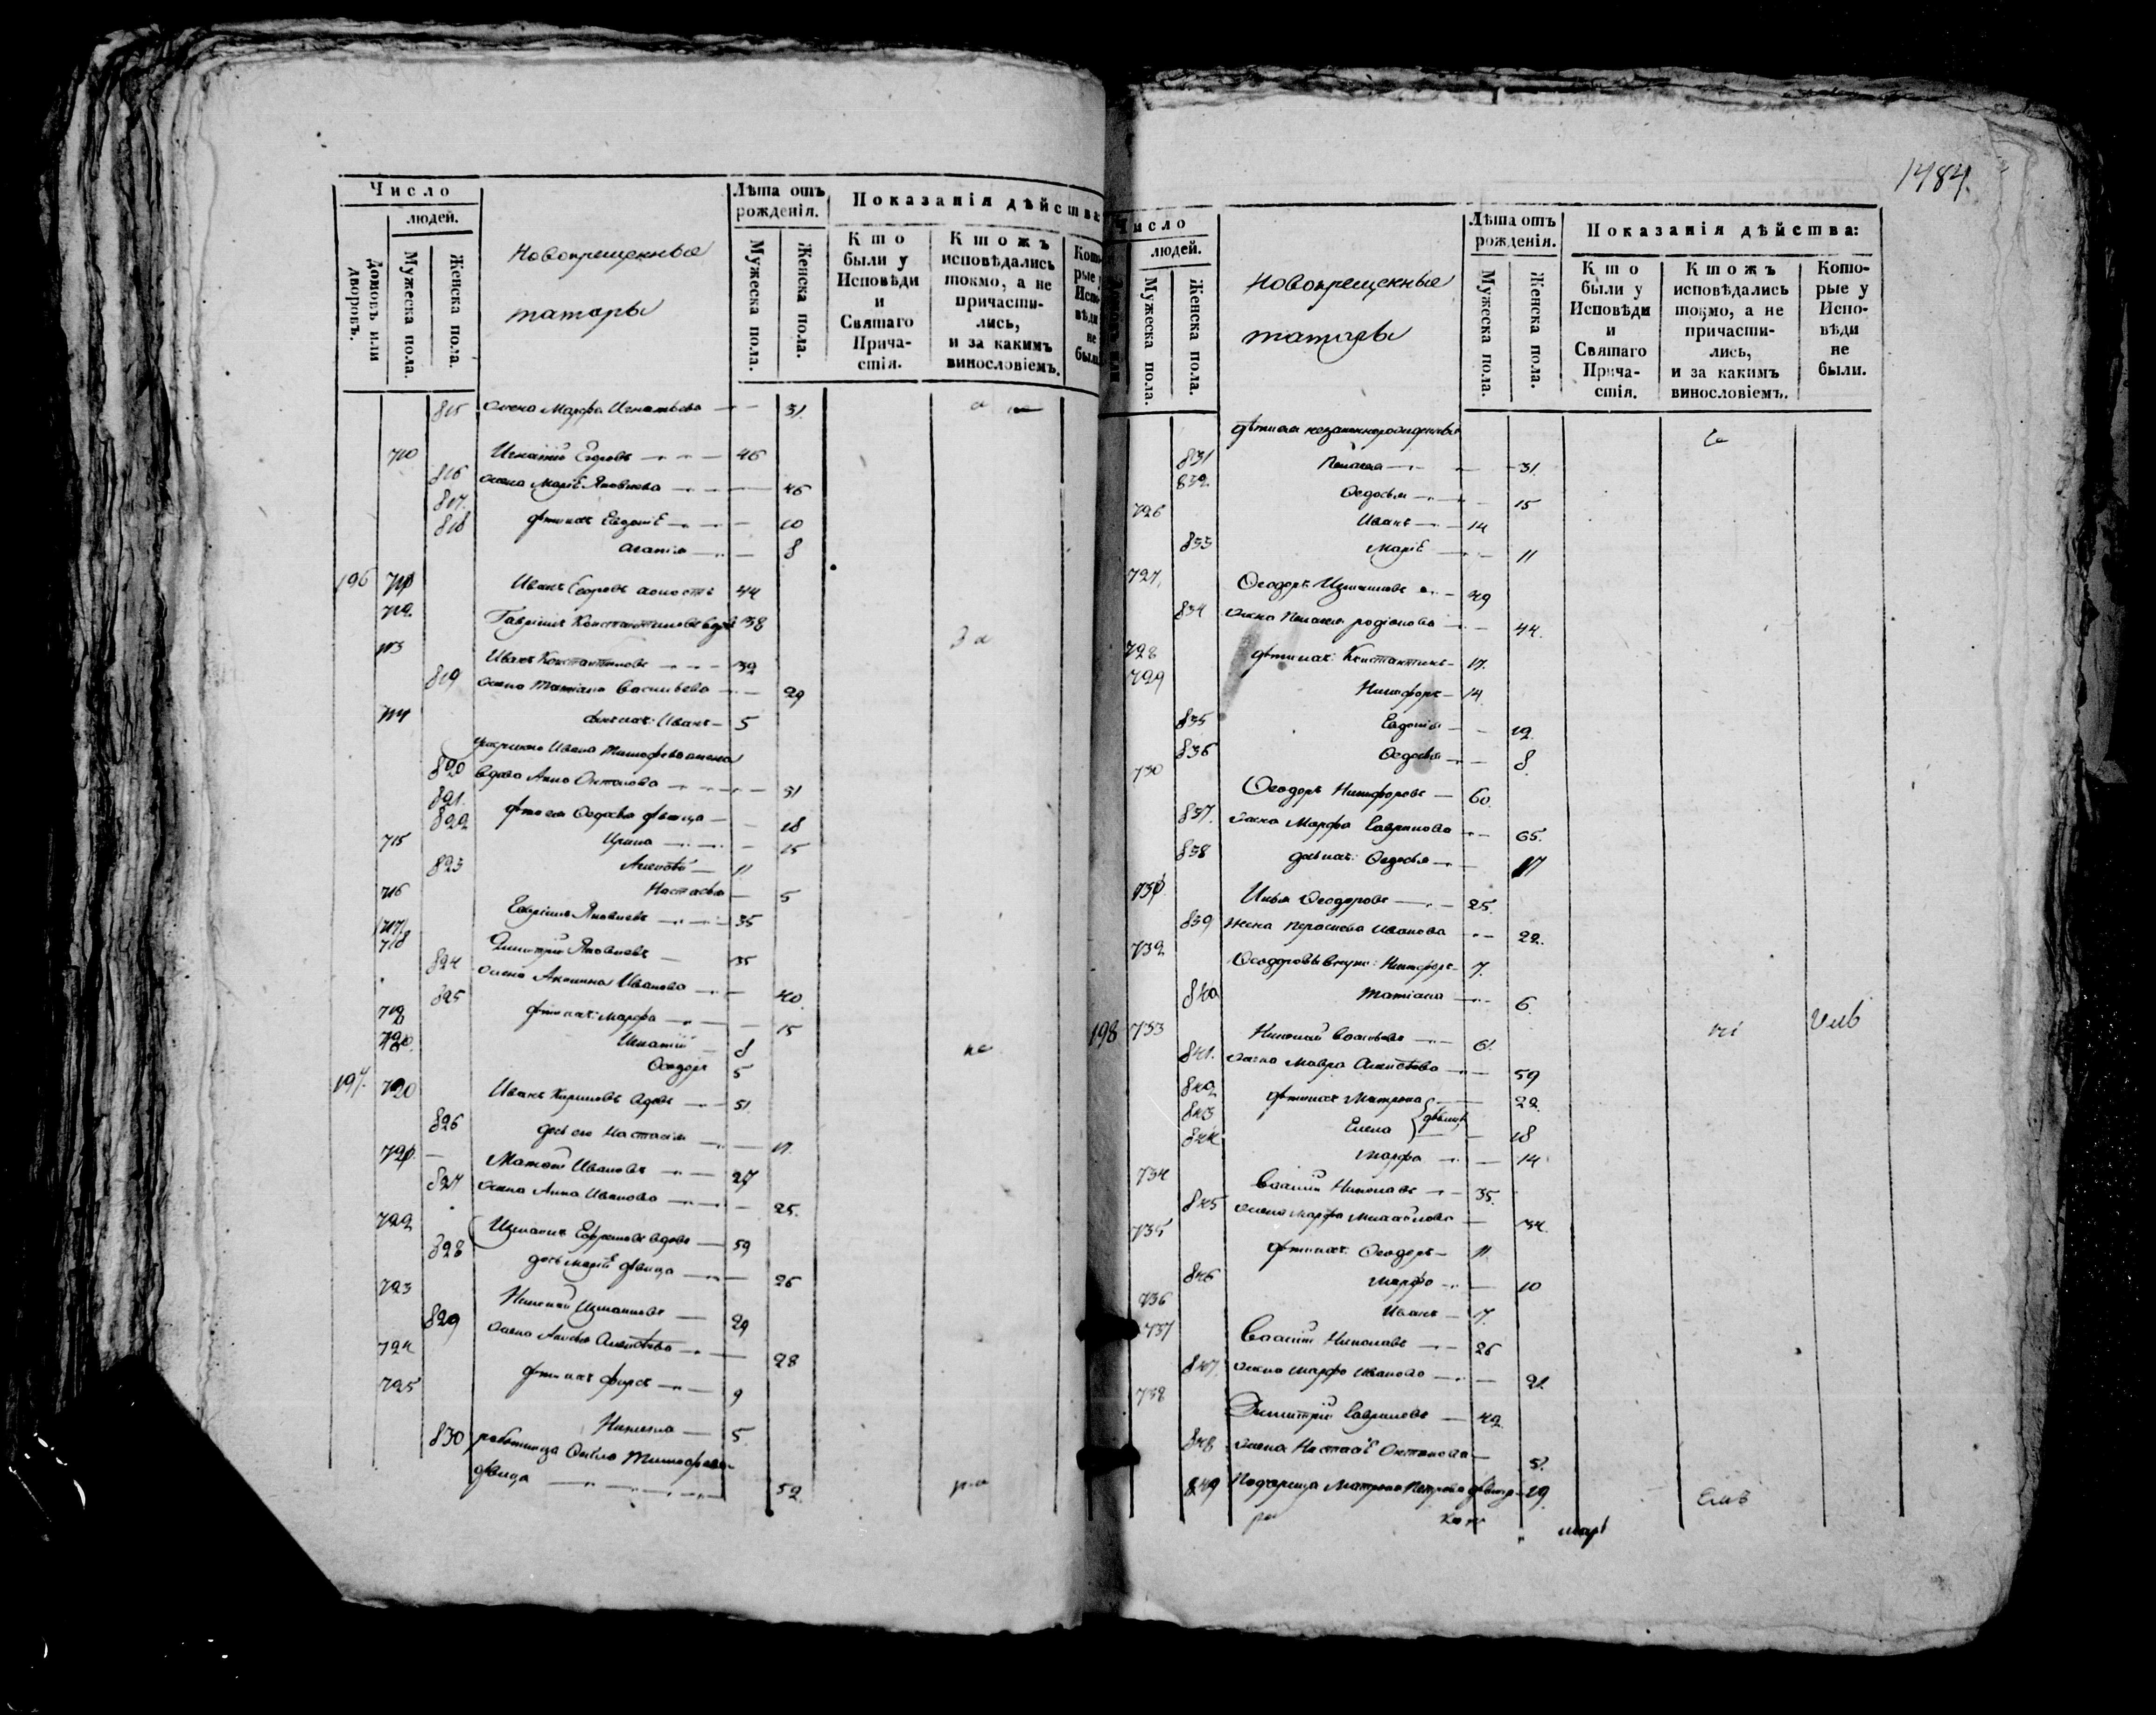 Число
людей.
домовъ или дворовъ.
Мужеска пола.
Женска пола.
Новокрещенные
татары
Лѣта отъ
рожденія.
Мужеска пола.
Женска пола.
Показанія дѣйства:
Кто
были у
Исповѣди
и
Святаго
Прича-
стія.
Ктожъ
исповѣдались
токмо, а не
причасти-
лись,
и за какимъ
винословіемъ.
Кото-
рые у
Испо-
вѣди
не
были.
815 жена Марфа Игнатьева 31
710 Игнатій Егоровъ 46
816 жена Маріѣ Яковлева 46
817 дѣти ихъ Евдокіѣ 10
818 Агапія 8
196 711 Иванъ Егоровъ холостъ 44
712 Гаврилъ Константиновъ вдовъ 38
713 Иванъ Константиновъ 32
819 жена Татіана Васильева 29
714 сынъ ихъ Иванъ 5
Ивана Тимофеева жена
820 вдова Анна 51
821 дѣти ея Федосья дѣвица 18
822 Ирина 15
715 Алексѣй 11
823 Настасья 5
716 Яковлевъ 35
717
718 Димитрій Яковлевъ 35
824 жена Акилина Иванова 40
825 дѣти ихъ: Марфа 15
719 Игнатій 8
Ѳеодоръ 5
197 720 Иванъ Кириловъ вдовъ 51
826 дочь его Настасія 17
721 Матвѣй Ивановъ 27
827 жена Анна Иванова 25
722 Измаилъ Ефремовъ вдовъ 59
828 дочь Маріѣ дѣвица 26
723 Николай Измаиловъ 29
829 жена Алексѣева 28
724 дѣти ихъ Фирсъ 9
725 Никита 5
830 работница Тимофеева
дѣвица 52
1484.
Число
людей.
Мужеска пола.
Женска пола.
Новокрещенные
татары
Лѣта отъ
рожденія.
Мужеска пола.
Женска пола.
Показанія дѣйства:
Кто
были у
Исповѣди
и
Святаго
Прича-
стія.
Ктожъ
исповѣдались
токмо, а не
причасти-
лись,
и за какимъ
винословіемъ.
Кото-
рые у
Испо-
вѣди
не
были.
дѣти ея незаконнорожденные
831 Пелагея 31
832 Ѳедосья 15
726 Иванъ 14
833 Маріѣ 11
727 Ѳеодоръ Измаиловъ 49
834 жена Пелагея Родіонова 44
728 дѣти ихъ: Константинъ 17
729 Никифоръ 14
835 Евдокія 12
836 Ѳедосья 8
730 Ѳеодоръ Никифоровъ 60
837 жена Марфа Гаврилова 65
838 дочь ихъ: Ѳедосья 17
731 Илья Ѳеодоровъ 25
839 жена Парасковья Иванова 22
732 Ѳеодоровы внуки: Никифоръ 7
840 Татіана 6
198 733 Николай Васильевъ 61
841 жена Мавра Алексѣева 59
842 дѣти ихъ Матрона 22
843 Елена дѣвицы 18
844 Марфа 14
734 Василій Николаевъ 35
845 жена Марфа Михайлова 34
735 дѣти ихъ: Ѳеодоръ 11
846 Марфа 10
736 Иванъ 7
737 Василій Николаевъ 26
847 жена Марфа Иванова 21
738 Димитрій Гавриловъ 42
848 жена Настасіѣ 51
849 Матрона Петрова дѣвица 19